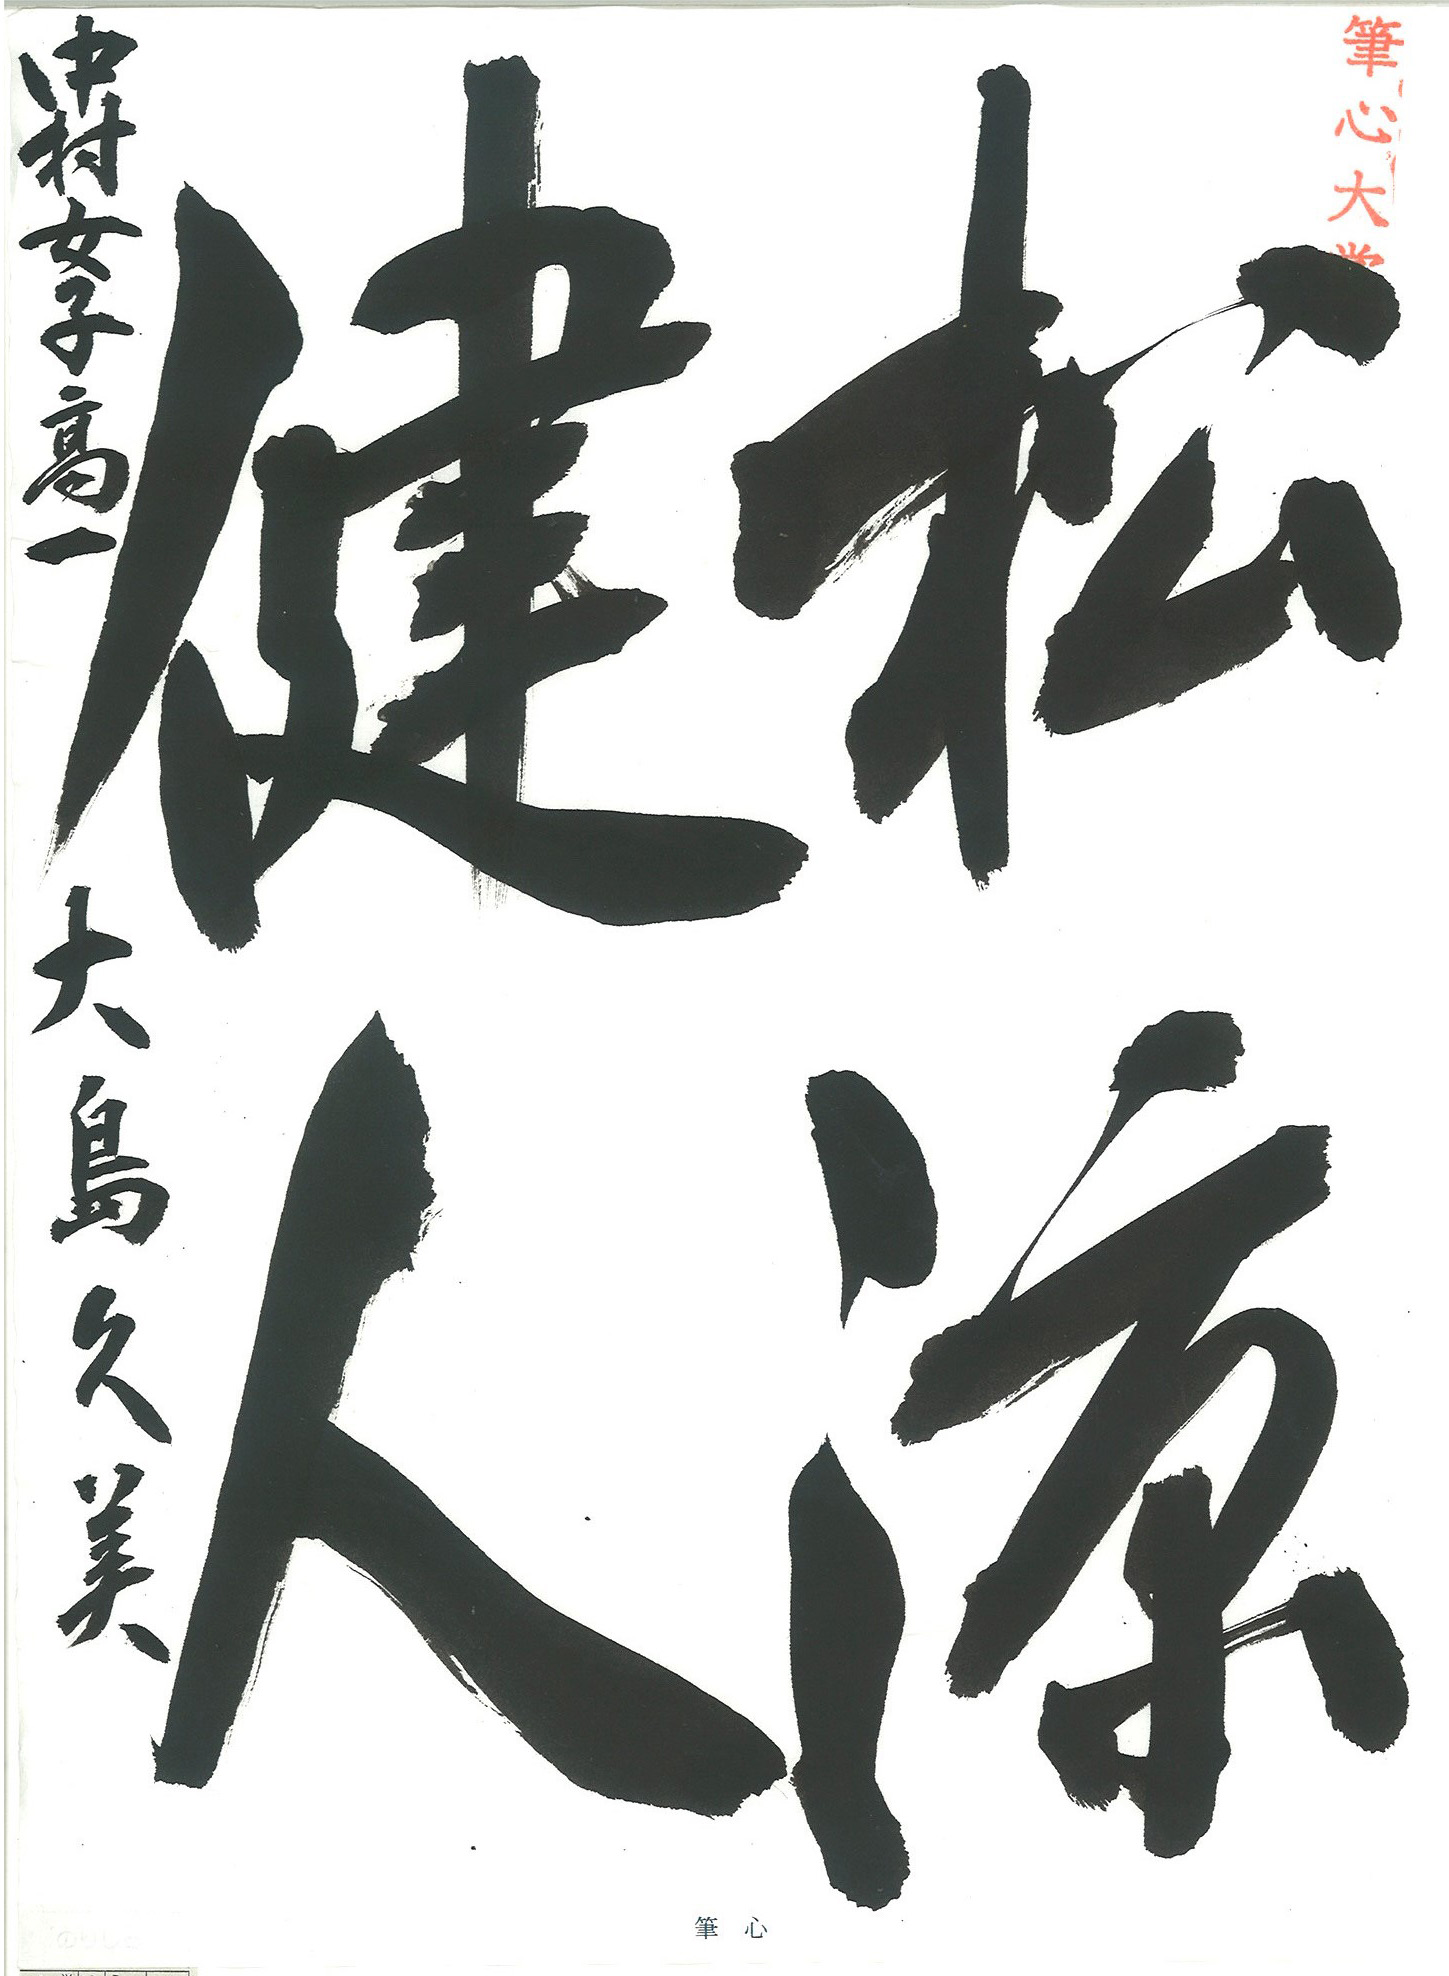 筆心大
松涼
健人
中村女子高一 大島久美
筆心